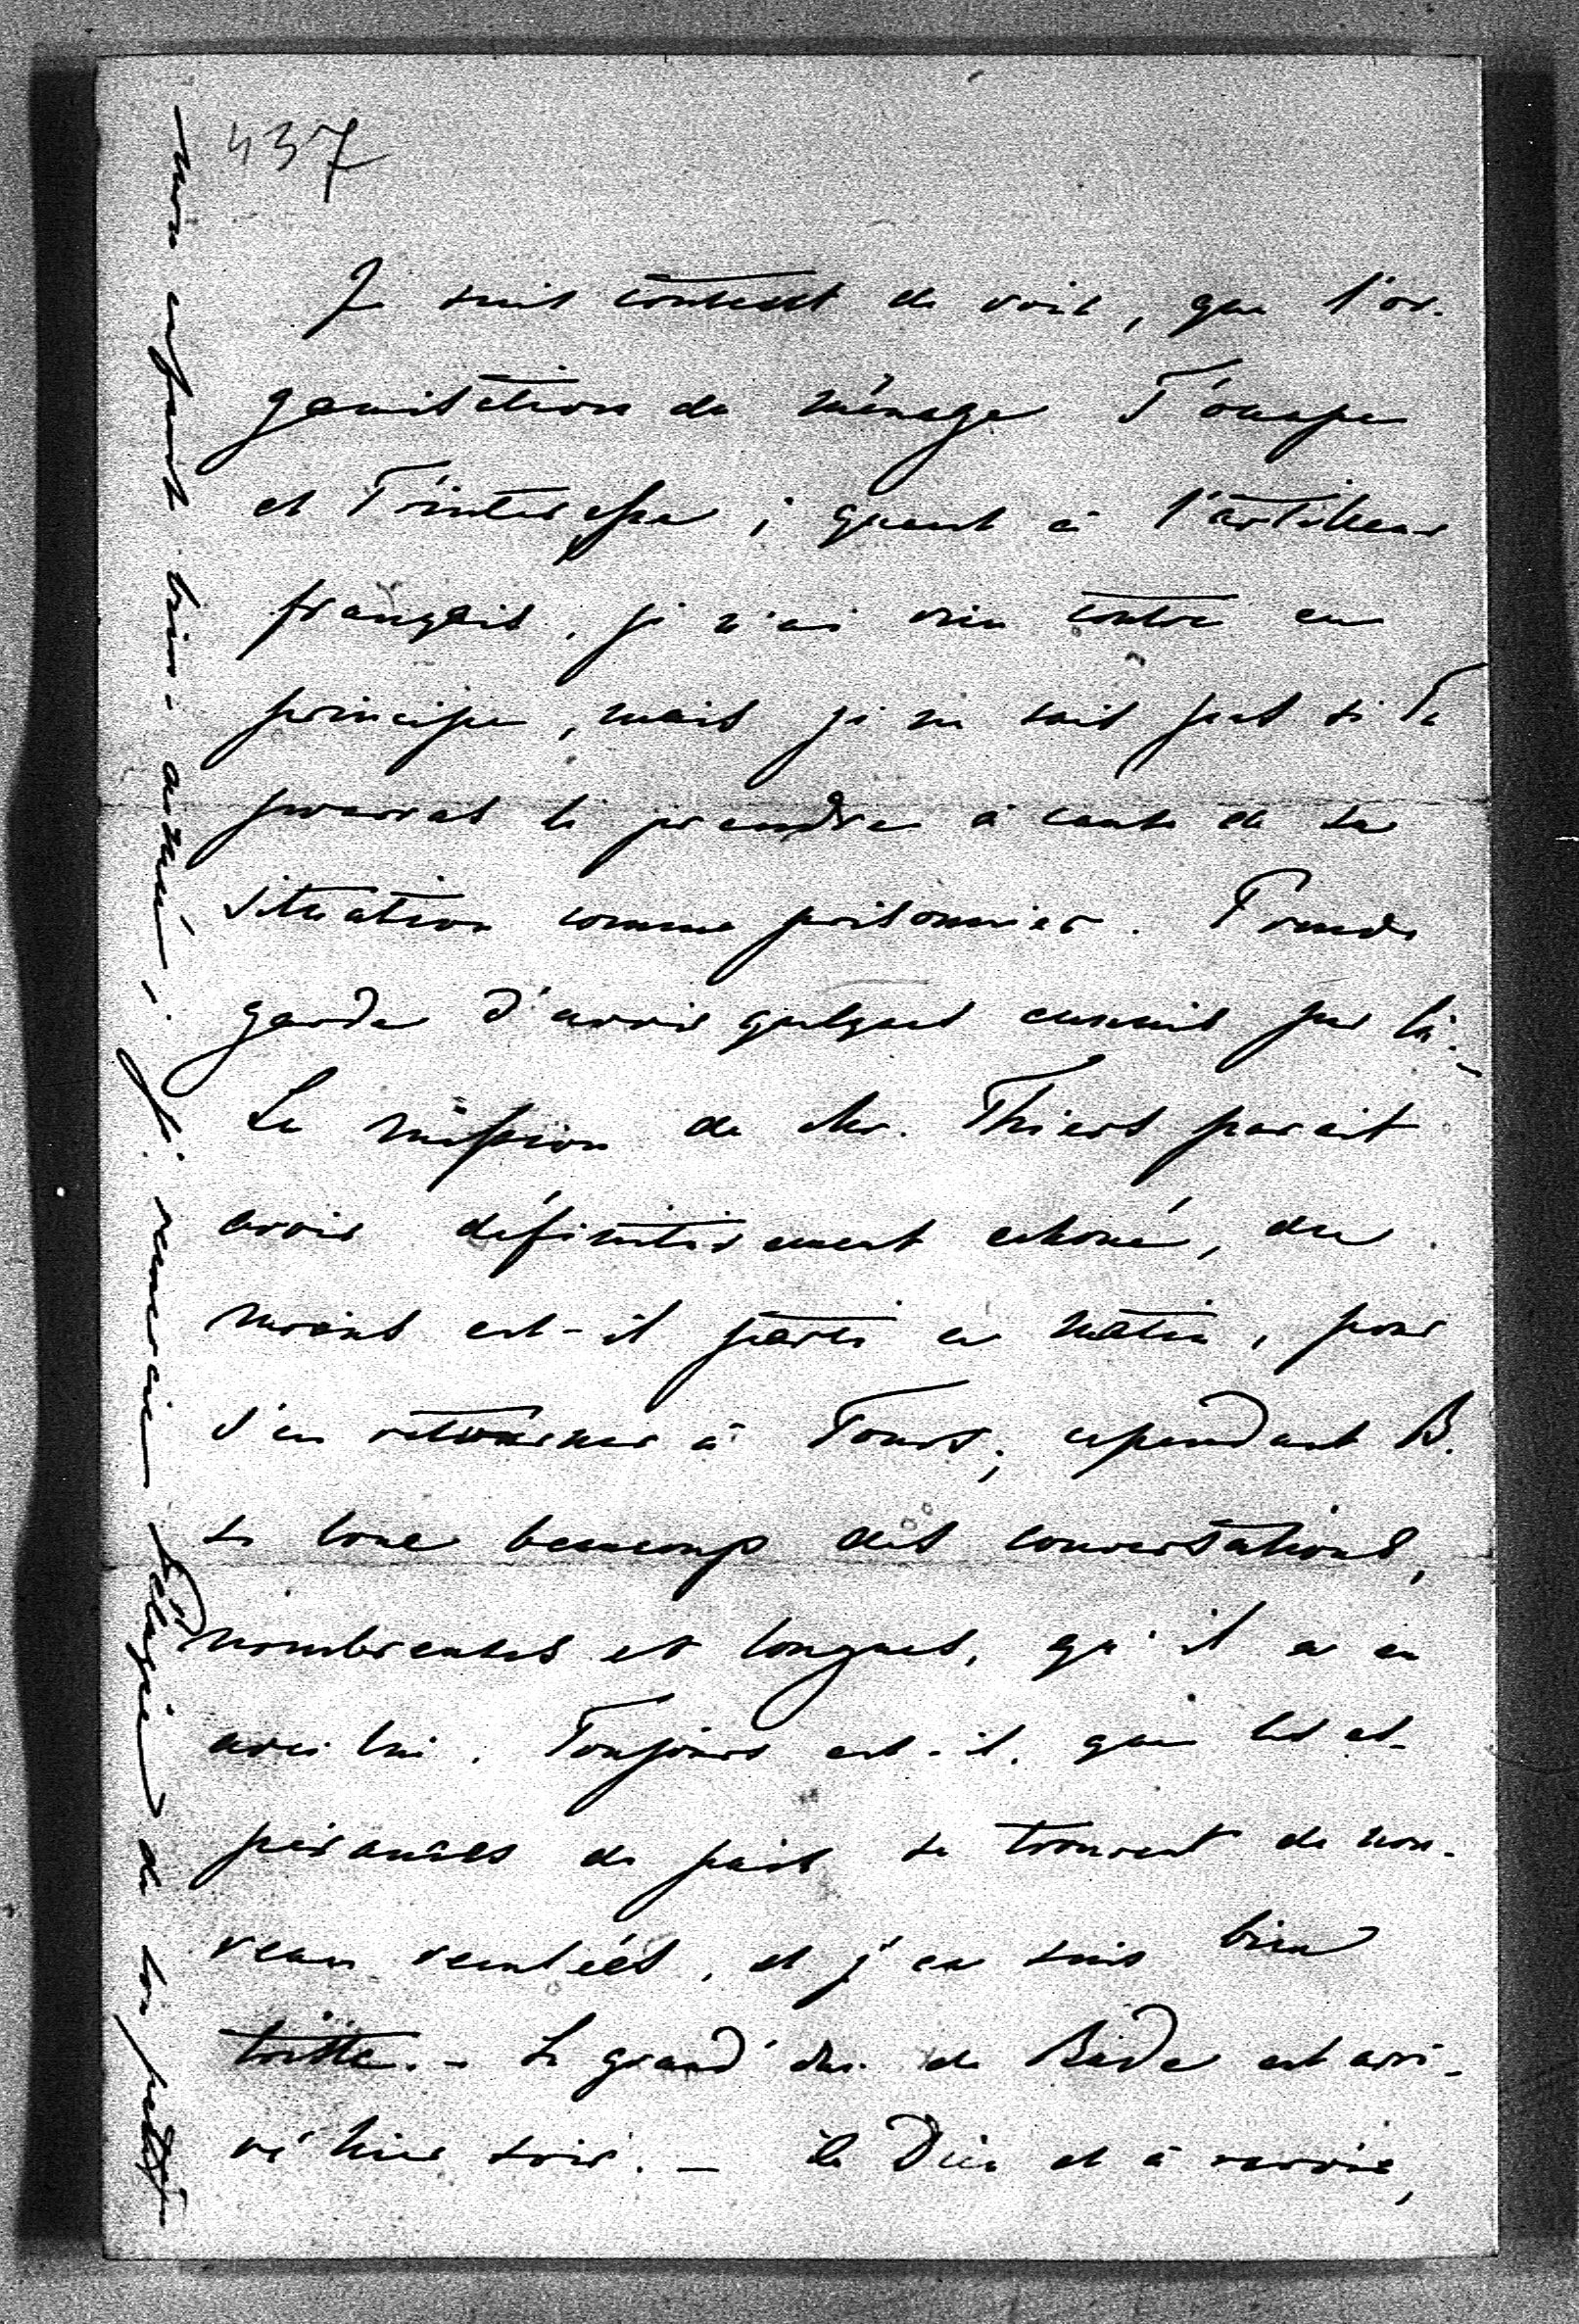 437
Je suis content de voir, que l'or-
ganisation du ménage T'occupe
et T'intéresse; quant à l'artilleur
français, je n'ai rien contre en
principe, mais je ne sais pas si Tu
pourras le prendre à cause de sa
situation comme prisonnier. Prends
garde d'avoir quelques ennuis par là. –
La mission de Mr. Thiers parait
avoir définitivement echoué, du
moins est-il parti ce matin, pour
s'en retourner à Tours; cependant B.
se loue beaucoup des conversations,
nombreuses et longues, qu'il a eu
avec lui. Toujours est-il, que les es-
pérances de paix se trouvent de nou-
veau reculées, et j'en suis bien
triste. – Le grand'duc de Bade est arri-
vé hier soir. – à Dieu et à revoir,
mon enfant bien-aimée –. Je remercie Hélène de sa petite